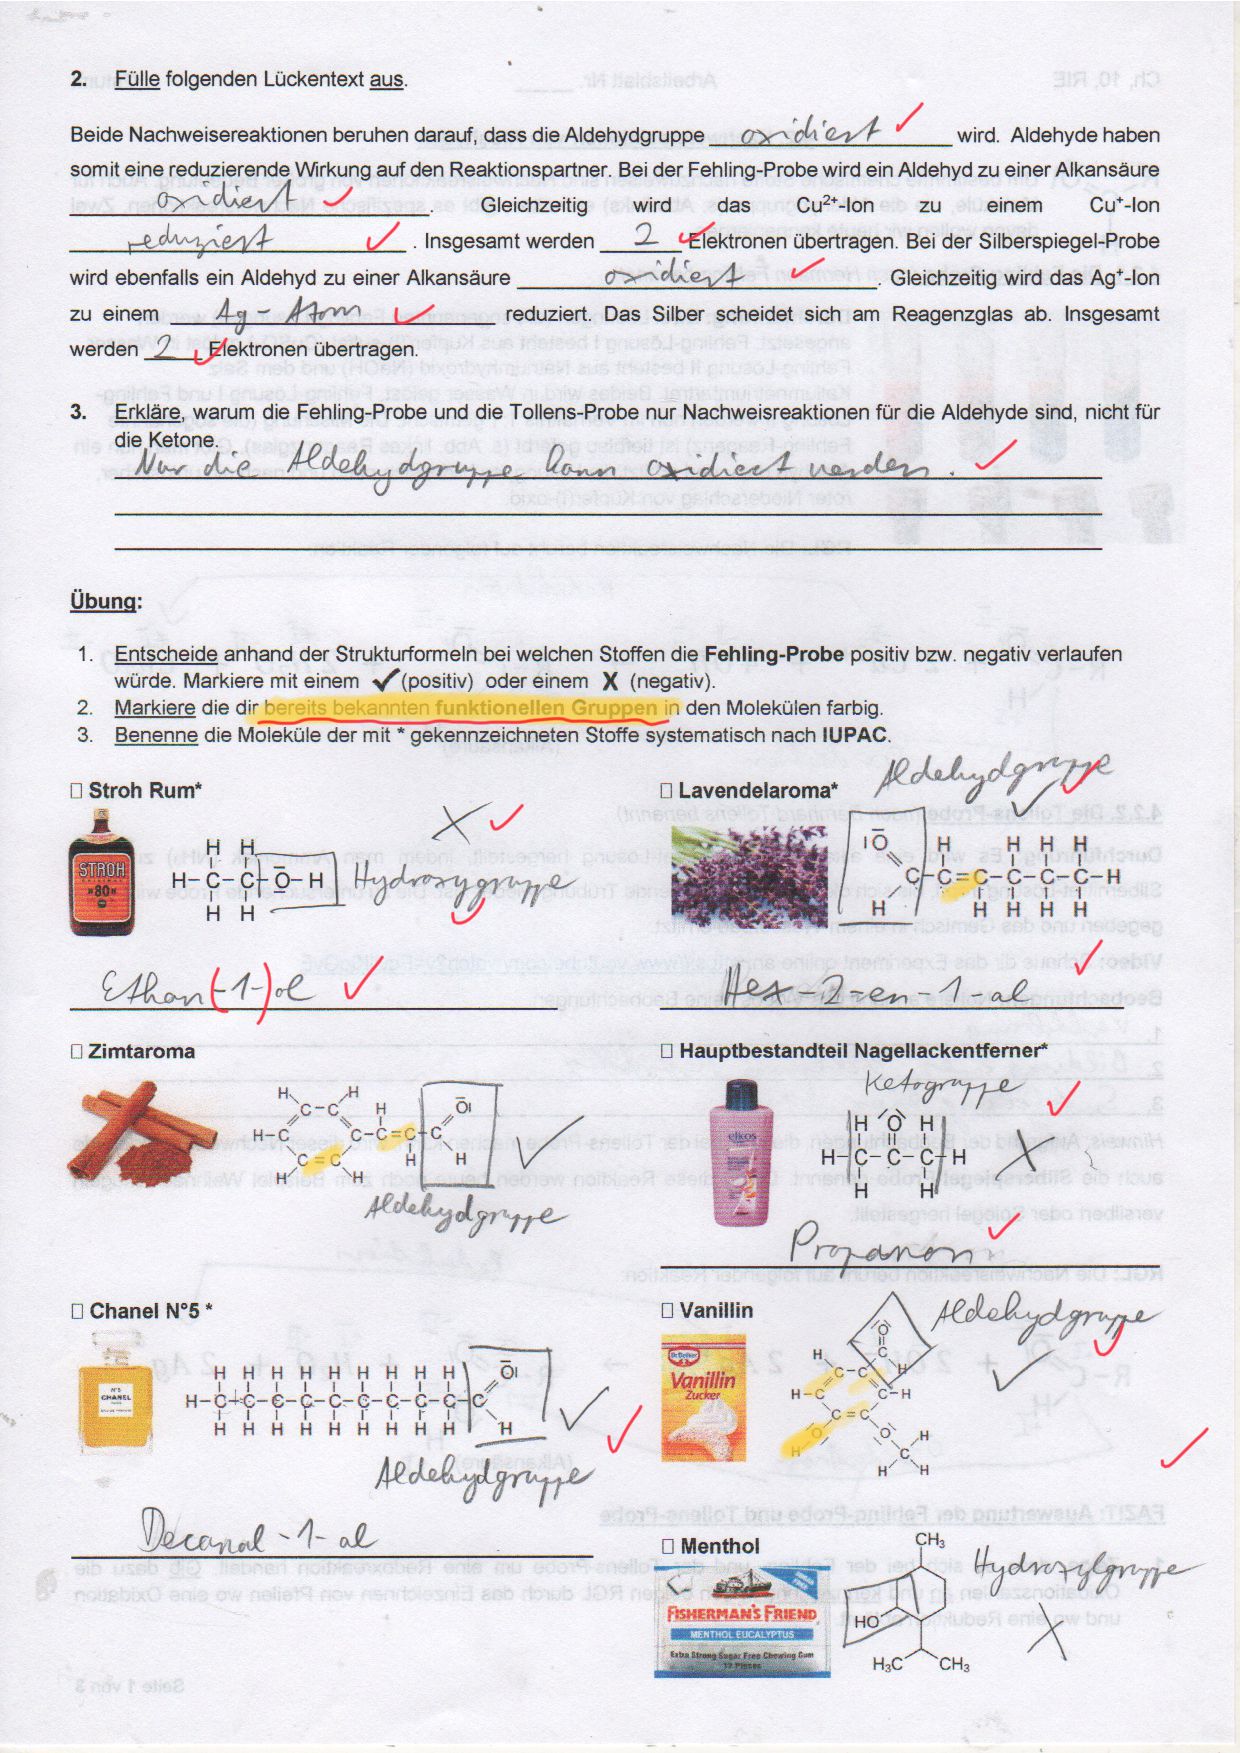 2. Fülle folgenden Lückentext aus.
Beide Nachweisereaktionen beruhen darauf, dass die Aldehydgruppe oxidiert wird. Aldehyde haben
somit eine reduzierende Wirkung auf den Reaktionspartner. Bei der Fehling-Probe wird ein Aldehyd zu einer Alkansäure
oxidiert. Gleichzeitig wird das Cu²⁺-Ion zu einem Cu⁺-Ion
reduziert. Insgesamt werden 2 Elektronen übertragen. Bei der Silberspiegel-Probe
wird ebenfalls ein Aldehyd zu einer Alkansäure oxidiert. Gleichzeitig wird das Ag⁺-Ion
zu einem Ag-Atom reduziert. Das Silber scheidet sich am Reagenzglas ab. Insgesamt
werden 2 Elektronen übertragen.
3. Erkläre, warum die Fehling-Probe und die Tollens-Probe nur Nachweisreaktionen für die Aldehyde sind, nicht für
die Ketone.
Nur die Aldehydgruppe kann oxidiert werden.
Übung:
1. Entscheide anhand der Strukturformeln bei welchen Stoffen die Fehling-Probe positiv bzw. negativ verlaufen
würde. Markiere mit einem ✓ (positiv) oder einem X (negativ).
2. Markiere die dir bereits bekannten funktionellen Gruppen in den Molekülen farbig.
3. Benenne die Moleküle der mit * gekennzeichneten Stoffe systematisch nach IUPAC.
☐ Stroh Rum*
X
STROH
»80«
H H
H-C-C-O-H Hydroxygruppe
H H
Ethan(-1-)ol
☐ Lavendelaroma*
Aldehydgruppe
✓
O H H H H
C-C=C-C-C-C-H
H H H H H
Hex-2-en-1-al
☐ Zimtaroma
H H
C-C H O
H-C C-C=C-C
C=C H H
H
✓
Aldehydgruppe
☐ Hauptbestandteil Nagellackentferner*
Ketogruppe
elkos
H O H
H-C-C-C-H
H H
X
Propanon
☐ Chanel N°5 *
N°5
CHANEL
H H H H H H H H H O
H-C-C-C-C-C-C-C-C-C-C
H H H H H H H H H H
✓
Aldehydgruppe
Decanal-1-al
☐ Vanillin
Aldehydgruppe
✓
Dr. Oetker
Vanillin
Zucker
O
H C
C H
H-C C-H
C=C
H O O H
C
H H
☐ Menthol
Hydroxylgruppe
X
FISHERMAN'S FRIEND
MENTHOL EUCALYPTUS
Extra Strong Sugar Free Chewing Gum
CH₃
HO
H₃C CH₃